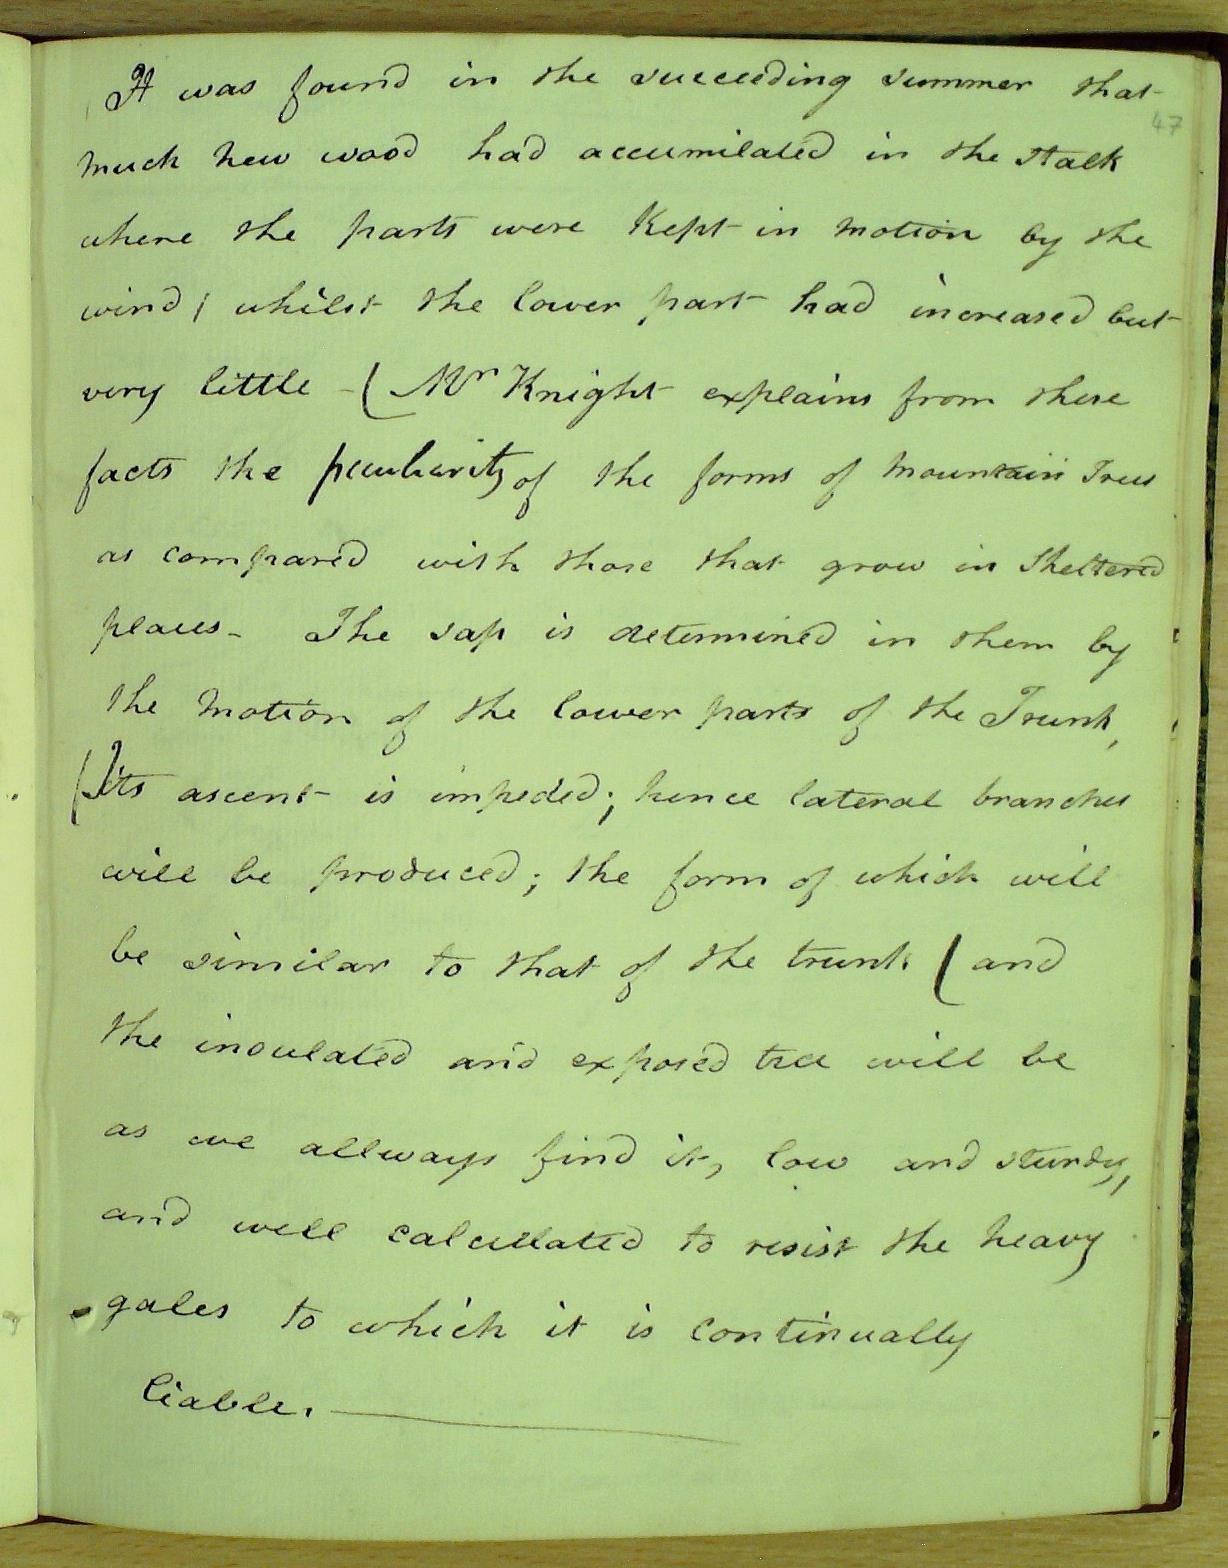 It was found in the succeeding summer that
47
much new wood had accumilated in the stalk
where the parts were kept in motion by the
wind; whilst the lower part had increased but
very little - ( Mr Knight explains from these
facts the peculiarity of the forms of mountain Trees
as compared with those that grow in sheltered
places - The sap is determined in them by
the motion of the lower parts of the Trunk,
(Its ascent is impeded; hence lateral branches
will be produced; the form of which will
be similar to that of the trunk ( and
the insulated and exposed tree will be
as we allways find it, low and sturdy,
and well calculated to resist the heavy
gales to which it is continually
liable.